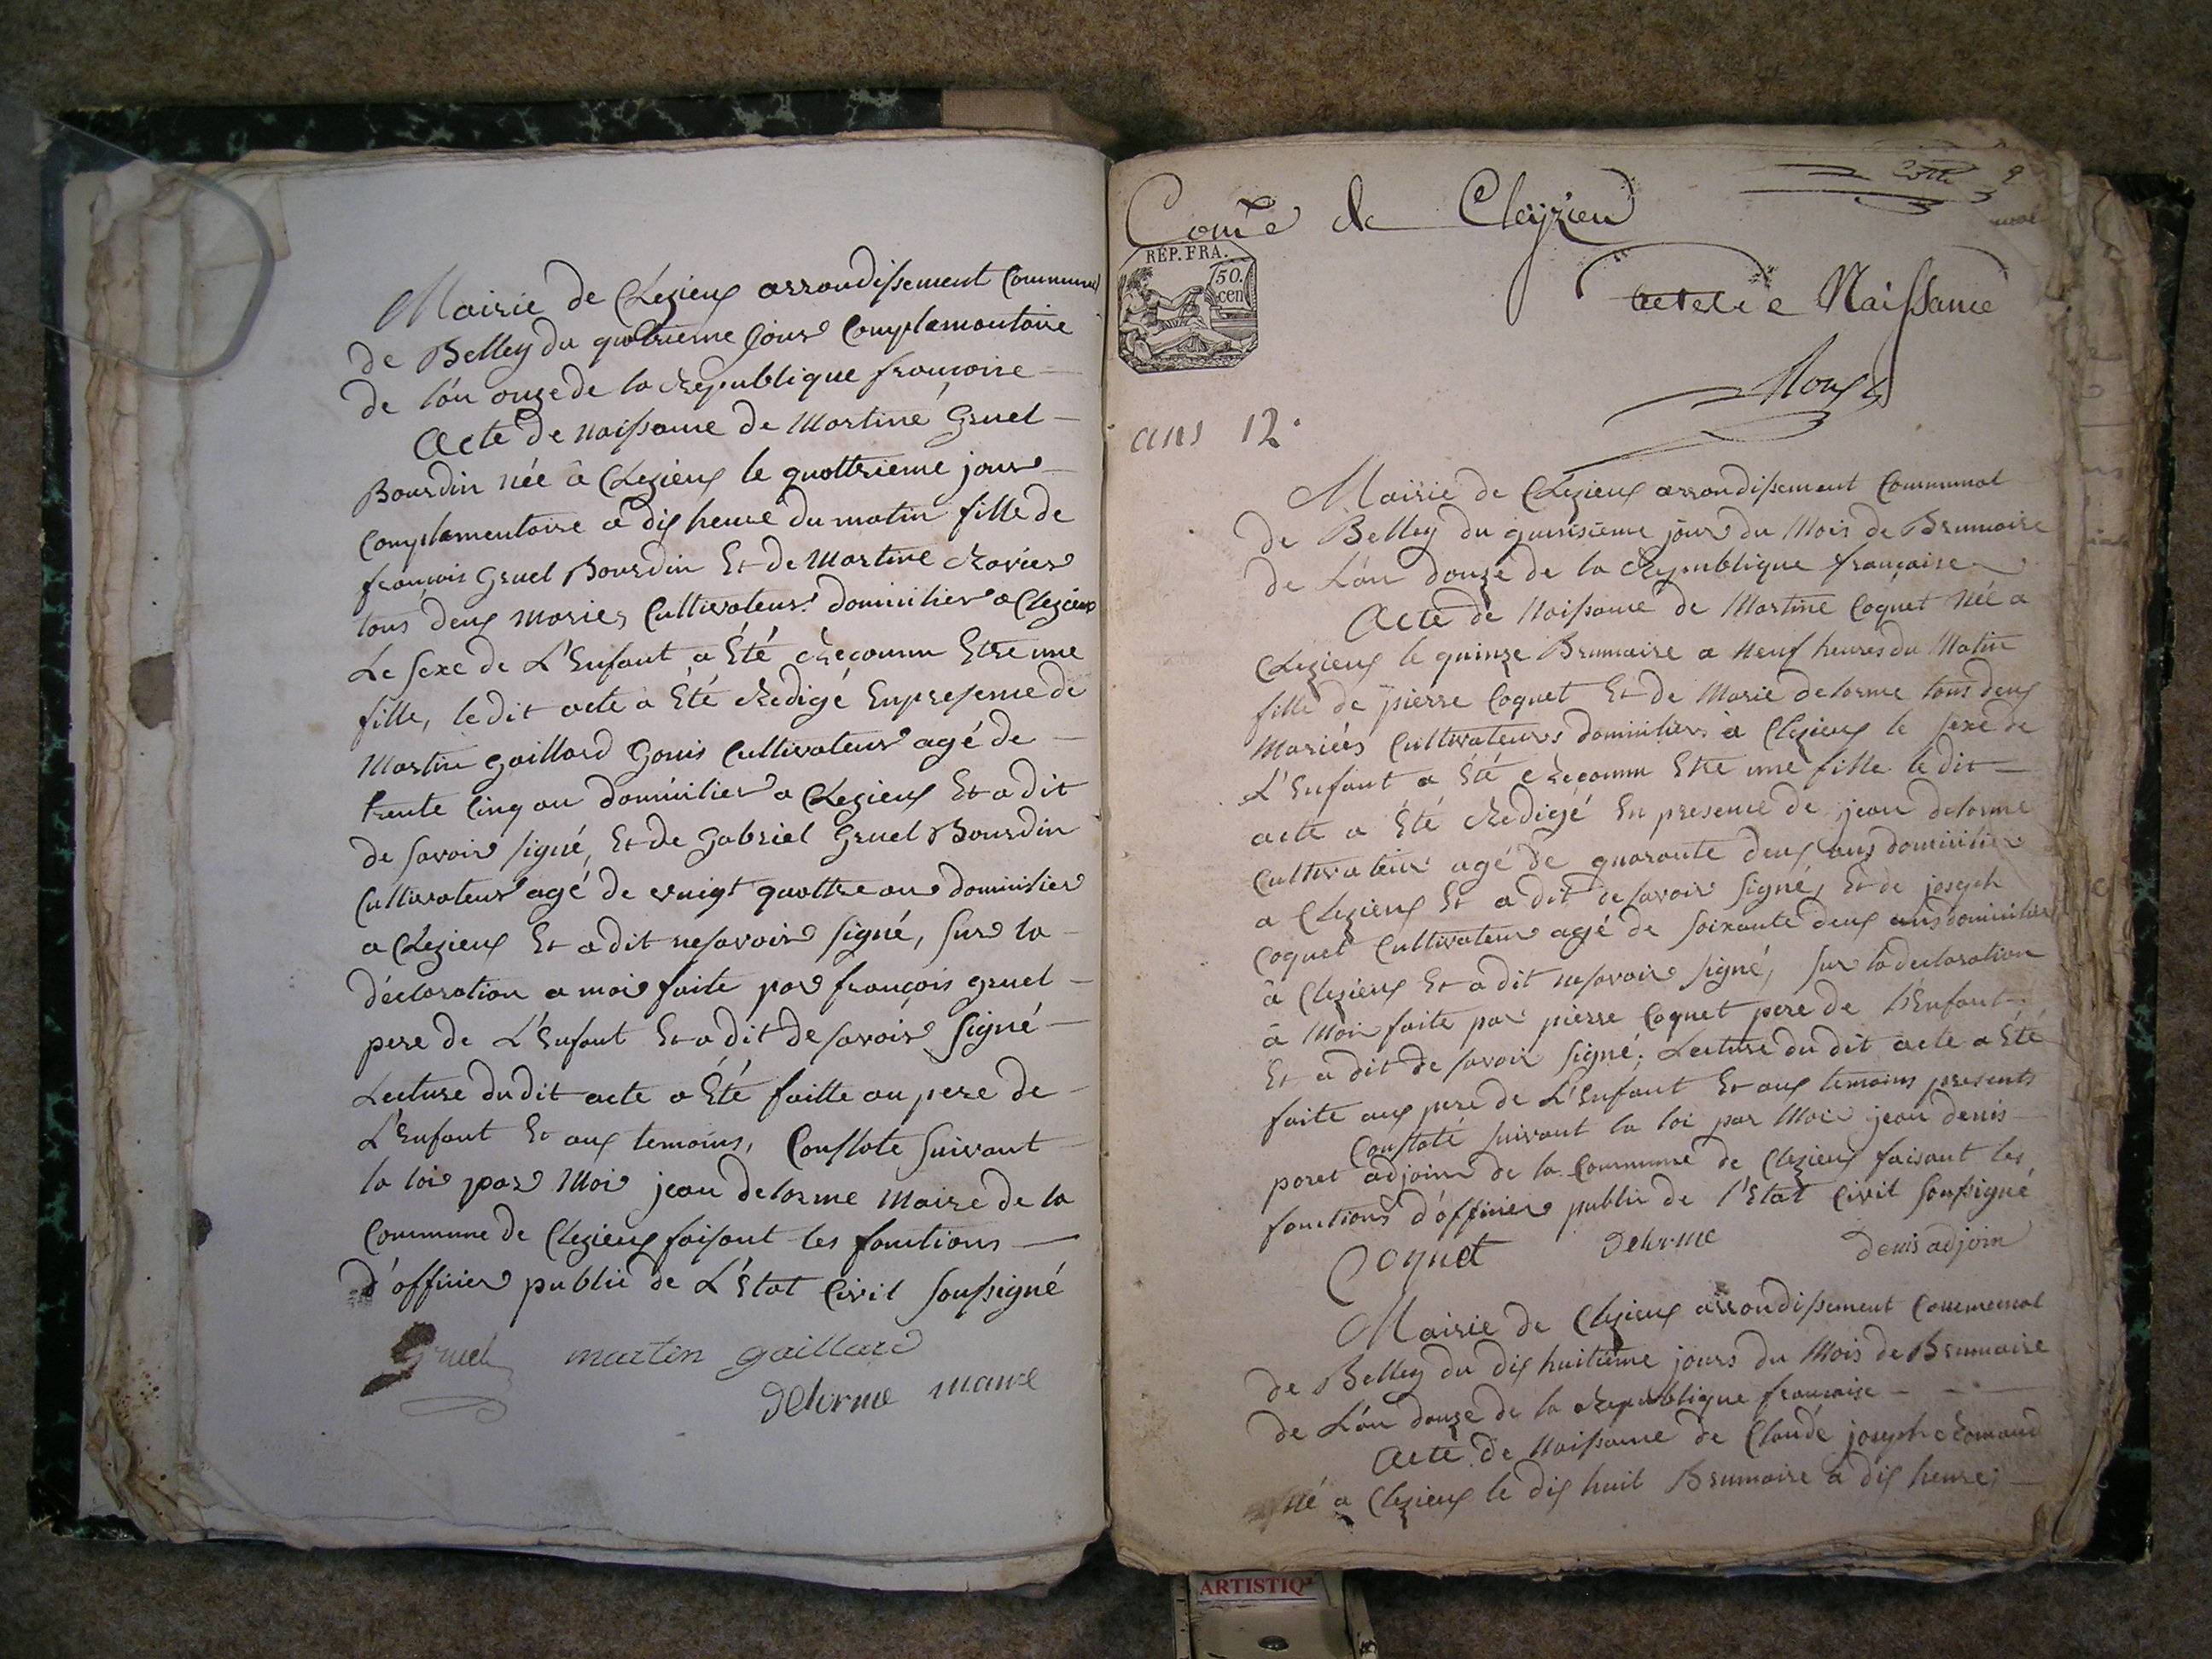 Mairie de Clezieux arrondissement Communal
de Belley du quatrieme Jour Complementaire
de l'an onze de la Republique françoise
Acte de naissance de Martine Gruel
Bourdin née a Clezieux le quattrieme jour
Complementaire a dix heure du matin fille de
françois Gruel Bourdin Et de Martine Ravier
tous deux mariez Cultivateur domicilier a Clezieux
Le sexe de L'Enfant a Eté Reconnu Etre une
fille, le dit acte a Eté Redigé En presence de
Martin Gaillard Gonis Cultivateur agé de
trente Cinq an domicilier a Clezieux Et a dit
de savoir signé, Et de Gabriel Gruel Bourdin
Cultivateur agé de vingt quattre an domicilier
a Clezieux Et a dit ne savoir signé, Sur la
déclaration a moi faite par françois Gruel
pere de L'Enfant Et a dit de savoir Signé
Lecture du dit acte a Eté faitte au pere de
L'Enfant Et aux temoins, Constate Suivant
la loi par Moi jean delorme Maire de la
Commune de Clezieux faisant les fonctions
d'officier public de L'Etat Civil Soussigné
Gruel martin gaillard
delorme maire
Cotte 9
Come de Cleyzieu
Acte de Naissance
REP. FRA.
50.
cen
ans 12.
Mairie de Clezieux arrondissement Communal
de Belley du quinsieme jour du Mois de Brumaire
de L'an douze de la Republique française
Acte de Naissance de Martine Coquet Née a
Clezieux le quinze Brumaire a Neuf heures du Matin
fille de pierre Coquet Et de Marie delorme tous deux
Mariées Cultivateurs domicilier a Clezieux le sexe de
L'Enfant a Eté Reconnu Etre une fille le dit
acte a Eté Redigé En presence de jean delorme
Cultivateur agé de quarante deux ans domicilier
a Clezieux Et a dit de savoir Signé, Et de joseph
Coquet Cultivateur agé de soixante deux ans domicilier
à Clezieux Et a dit ne savoir signé, Sur la declaration
à Moi faite par pierre Coquet pere de L'Enfant
Et a dit de savoir Signé. Lecture du dit acte a Eté
faite aux pere de L'Enfant Et aux temoins presents
Constaté suivant la loi par Moi jean denis
poret adjoin de la Commune de Clezieux faisant les
fonctions d'officier public de l'Etat Civil Soussigné
Coquet delorme denis adjoin
Mairie de Clezieux arrondissement Communal
de Belley du dix huitieme jours du Mois de Brumaire
de L'an douze de la Republique françoise
Acte de Naissance de Claude joseph Romand
né a Clezieux le dix huit Brumaire a dix heures
ARTISTIQ